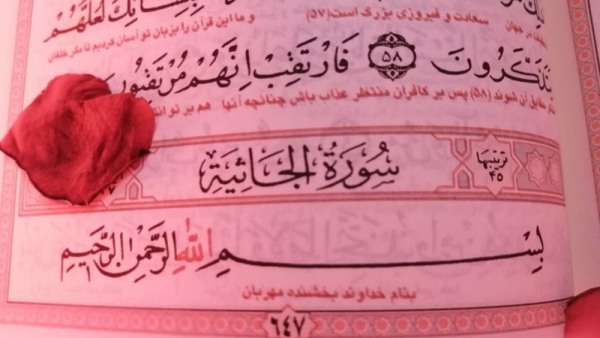 بِلِسَانِكَ لَعَلَّهُمْ
سعادت و فیروزی بزرگ است(۵۷) و ما این قرآن را بزبان تو آسان کردیم تا مگر خلقان
يَتَذَكَّرُونَ ﴿٥٨﴾ فَارْتَقِبْ اِنَّهُمْ مُرْتَقِبُونَ
حقایق آن شوند (۵۸) پس بر کافران منتظر عذاب باش چنانچه آنها هم بر تو
سُورَةُ الجَاثِيَةِ
ترتيبها
٤٥
بِسْمِ اللّٰهِ الرَّحْمٰنِ الرَّحِيمِ
بنام خداوند بخشنده مهربان
٦٤٧